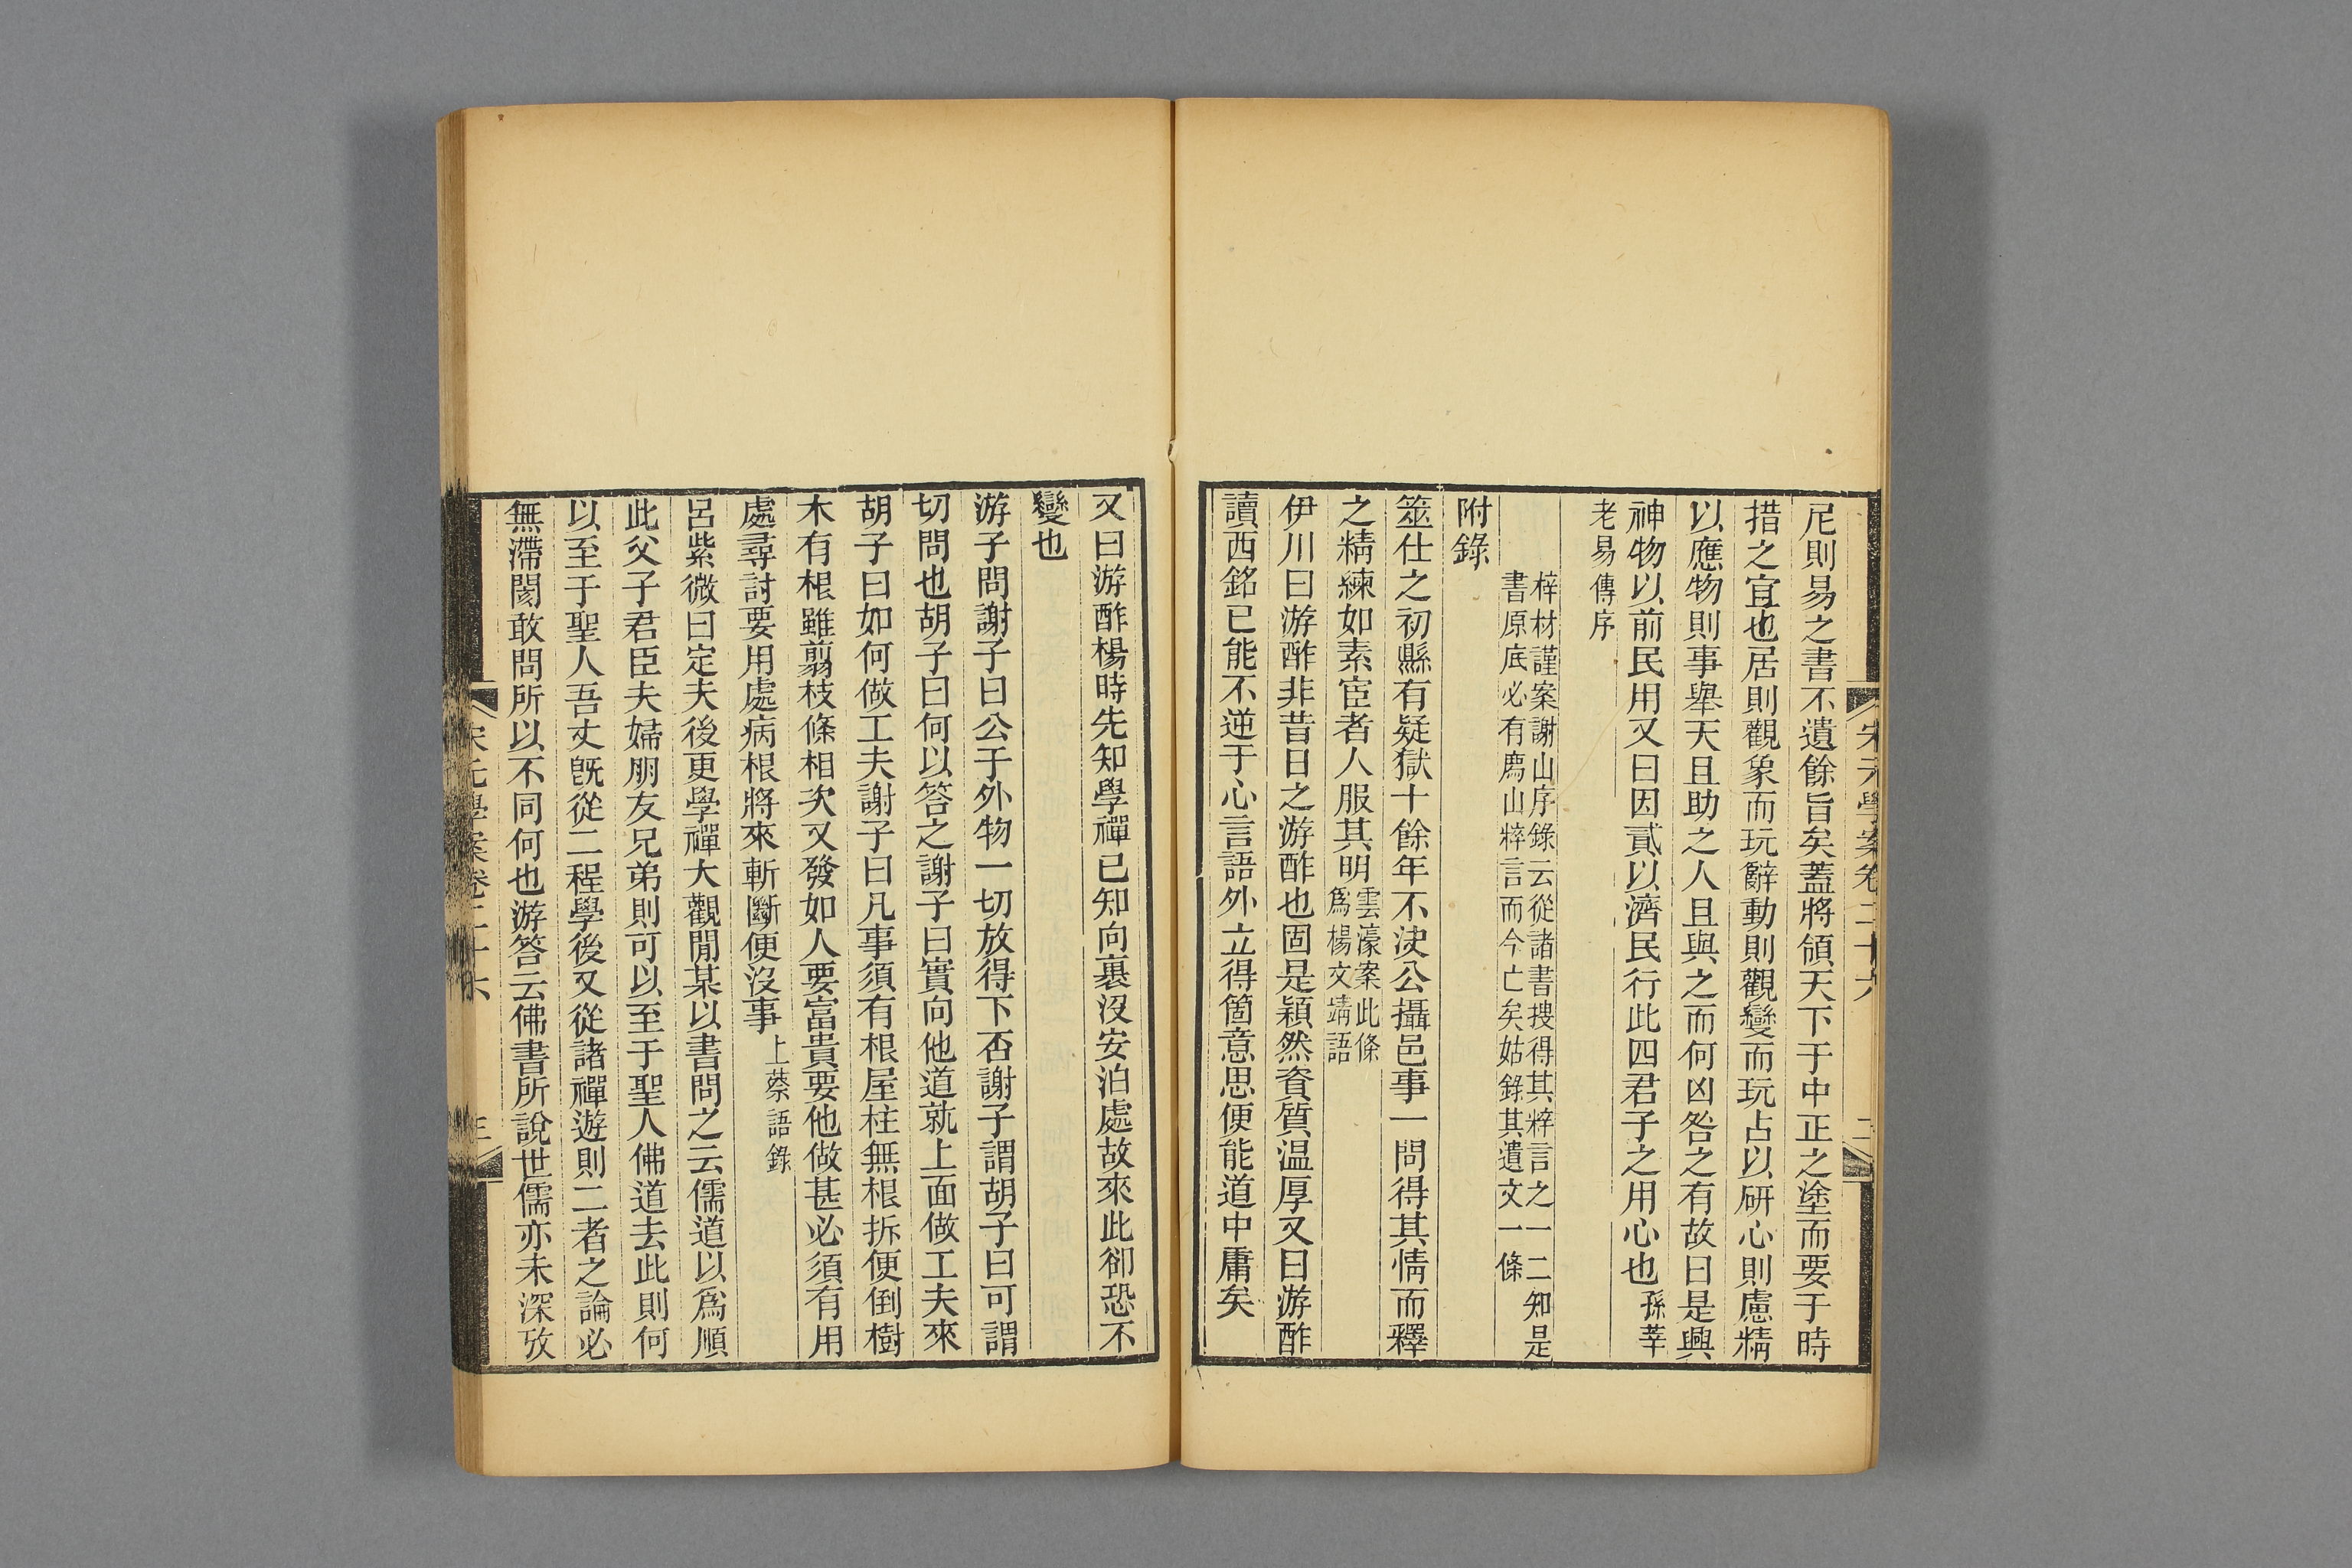 宋元學案卷二十六
二
尼則易之書不遺餘旨矣蓋將領天下于中正之塗而要于時
措之宜也居則觀象而玩辭動則觀變而玩占以研心則慮精
以應物則事舉天且助之人且與之而何凶咎之有故曰是興
神物以前民用又曰因貳以濟民行此四君子之用心也孫莘
老易傳序
梓材謹案謝山序錄云從諸書搜得其粹言之一二知是
書原底必有廌山粹言而今亡矣姑錄其遺文一條
附錄
筮仕之初縣有疑獄十餘年不決公攝邑事一問得其情而釋
之精練如素宦者人服其明雲濠案此條
爲楊文靖語
伊川曰游酢非昔日之游酢也固是穎然資質温厚又曰游酢
讀西銘已能不逆于心言語外立得箇意思便能道中庸矣
又曰游酢楊時先知學禪已知向裏沒安泊處故來此卻恐不
變也
游子問謝子曰公于外物一切放得下否謝子謂胡子曰可謂
切問也胡子曰何以答之謝子曰實向他道就上面做工夫來
胡子曰如何做工夫謝子曰凡事須有根屋柱無根拆便倒樹
木有根雖翦枝條相次又發如人要富貴要他做甚必須有用
處尋討要用處病根將來斬斷便沒事上蔡語錄
呂紫微曰定夫後更學禪大觀閒某以書問之云儒道以爲順
此父子君臣夫婦朋友兄弟則可以至于聖人佛道去此則何
以至于聖人吾丈旣從二程學後又從諸禪遊則二者之論必
無滯閡敢問所以不同何也游答云佛書所說世儒亦未深攷
宋元學案卷二十六
三